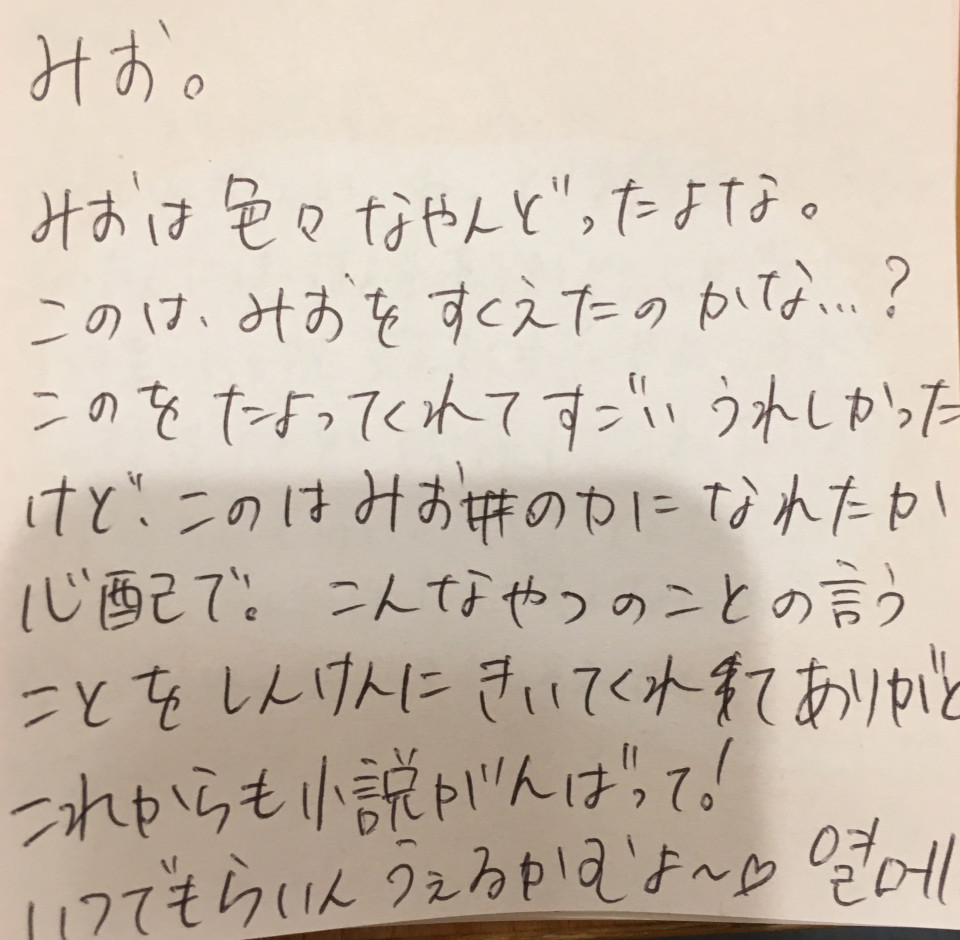 みお。
みおは色々なやんどったよな。
このは、みおをすくえたのかな…?
このをたよってくれてすごいうれしかった
けど、このはみおのかになれたか
心配で。こんなやつのことの言う
ことをしんけんにきいてくれてありがと
これからも小説がんばって!
いつでもらいんうぇるかむよ〜♡ 열메